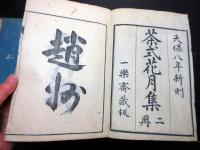 天保八年新刻
茶式花月集 二冊
一樂齋藏板
趙州